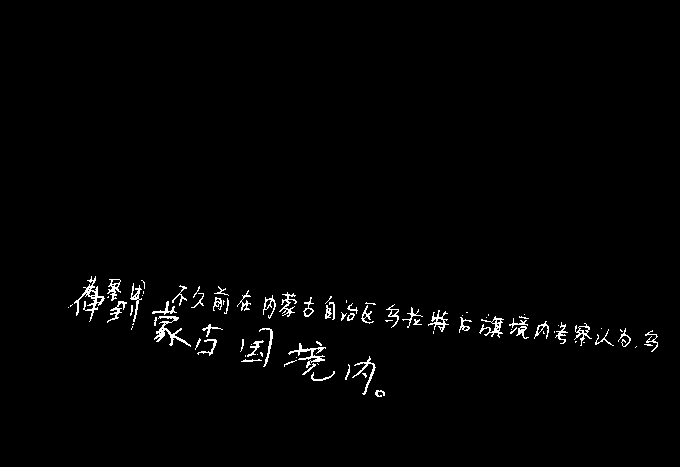 不久前在内蒙古自治区乌拉特后旗境内考察认为,乌
伸到蒙古国境内。